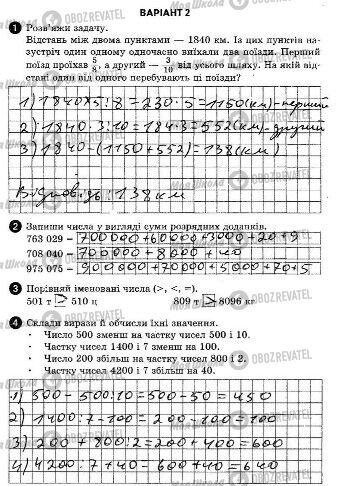 ВАРІАНТ 2
1 Розв'яжи задачу.
Відстань між двома пунктами — 1840 км. Із цих пунктів на-
зустріч один одному одночасно виїхали два поїзди. Перший
поїзд проїхав 5/8, а другий — 3/10 від усього шляху. На якій від-
стані один від одного перебувають ці поїзди?
1) 1840×5:8=230·5=1150(км)-перший
2) 1840·3:10=184·3=552(км)-другий
3) 1840-(1150+552)=138(км)
Відповідь: 138 км
2 Запиши числа у вигляді суми розрядних доданків.
763 029 – 700000+60000+3000+20+9
708 040 – 700000+8000+40
975 075 – 900000+70000+5000+70+5
3 Порівняй іменовані числа (>, <, =).
501 т > 510 ц 809 т > 8096 кг
4 Склади вирази й обчисли їхні значення.
· Число 500 зменш на частку чисел 500 і 10.
· Частку чисел 1400 і 7 зменш на 100.
· Число 200 збільш на частку чисел 800 і 2.
· Частку чисел 4200 і 7 збільш на 40.
1) 500-500:10=500-50=450
2) 1400:7-100=200-100=100
3) 200+800:2=200+400=600
4) 4200:7+40-600+40=640